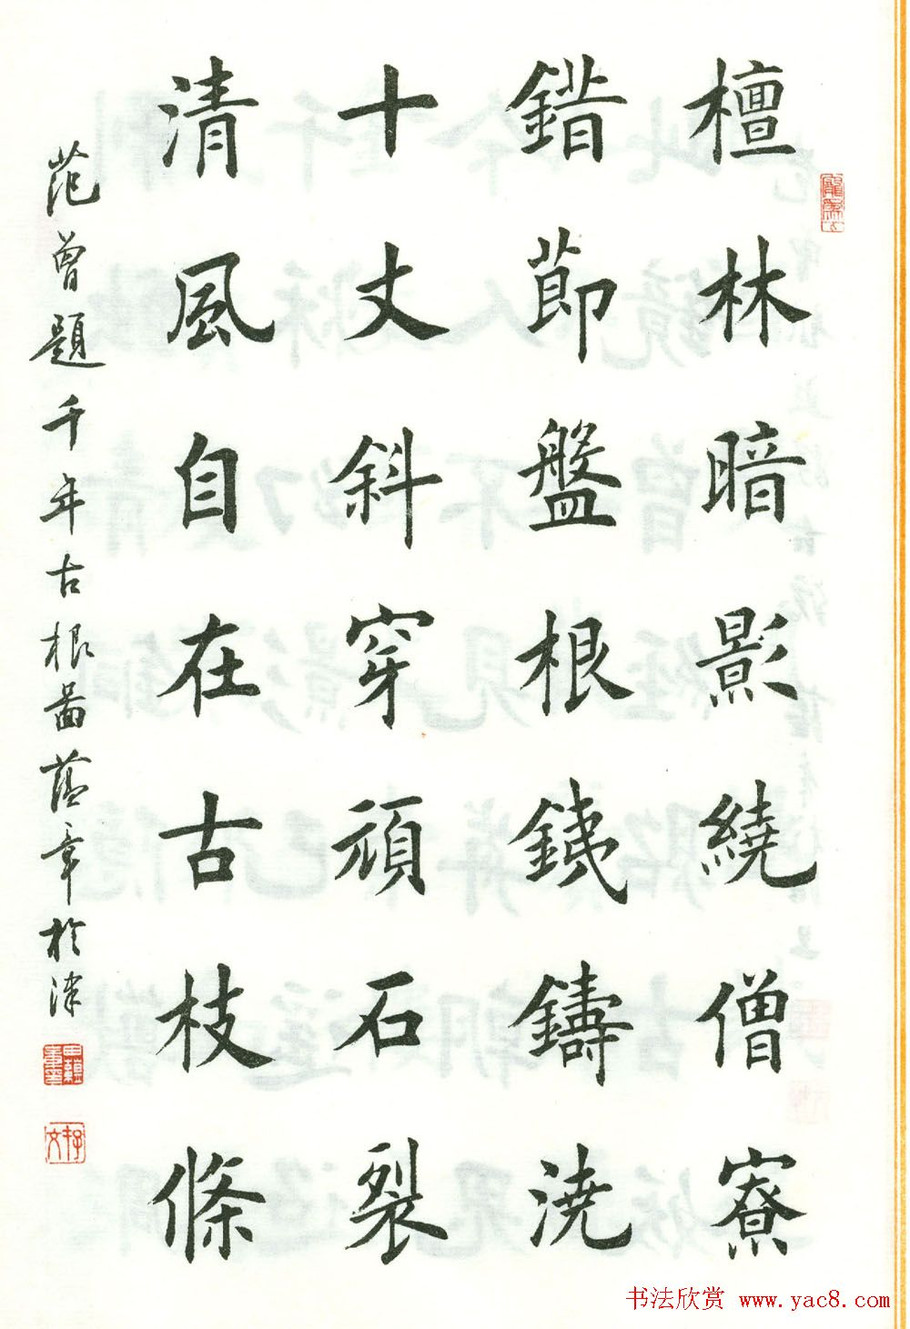 檀林暗影繞僧寮
錯節盤根鐵鑄澆
十丈斜穿頑石裂
清風自在古枝條
范曾題千年古根圖 章於津
书法欣赏 www.yac8.com